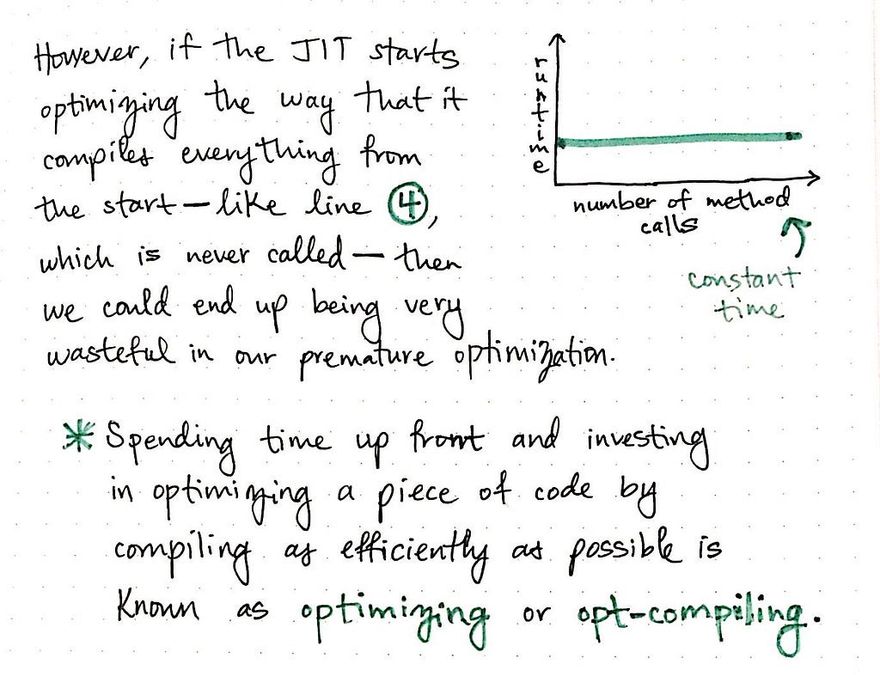 However, if the JIT starts
optimizing the way that it
compiles everything from
the start—like line ④,
which is never called—then
we could end up being very
wasteful in our premature optimization.
runtime
number of method
calls
constant
time
* Spending time up front and investing
in optimizing a piece of code by
compiling as efficiently as possible is
known as optimizing or opt-compiling.